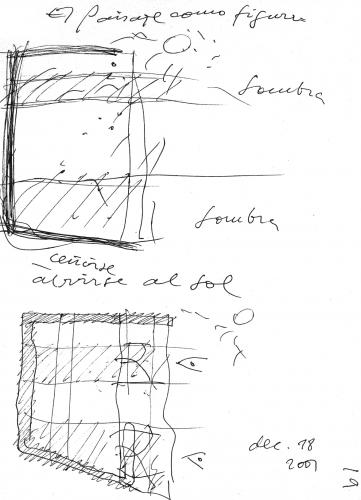 El Paisaje como figura
Sombra
Sombra
ceñirse
abrirse al sol
dec. 18
2001